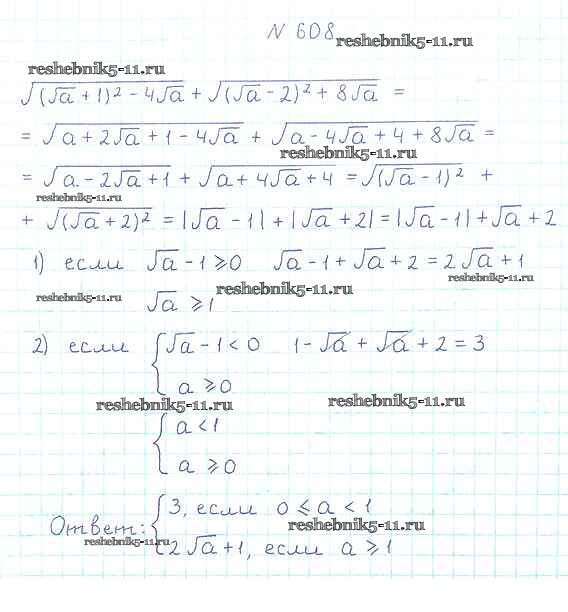 N 608
reshebnik5-11.ru
reshebnik5-11.ru
√((√a + 1)² - 4√a) + √((√a - 2)² + 8√a) =
= √(a + 2√a + 1 - 4√a) + √(a - 4√a + 4 + 8√a) =
reshebnik5-11.ru
= √(a - 2√a + 1) + √(a + 4√a + 4) = √((√a - 1)²) +
reshebnik5-11.ru
+ √((√a + 2)²) = |√a - 1| + |√a + 2| = |√a - 1| + √a + 2
1) если √a - 1 ⩾ 0 √a - 1 + √a + 2 = 2√a + 1
reshebnik5-11.ru
reshebnik5-11.ru
reshebnik5-11.ru
√a ⩾ 1
2) если { √a - 1 < 0 1 - √a + √a + 2 = 3
a ⩾ 0
reshebnik5-11.ru
reshebnik5-11.ru
{ a < 1
a ⩾ 0
Ответ: { 3, если 0 ⩽ a < 1
reshebnik5-11.ru
reshebnik5-11.ru
2√a + 1, если a ⩾ 1